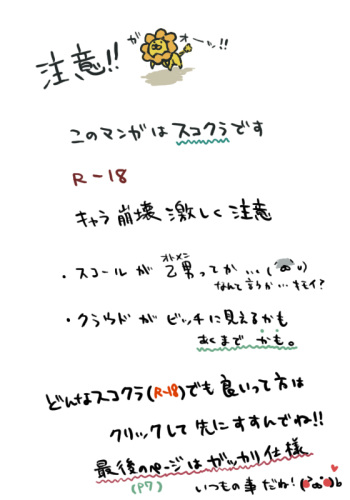 がオーッ!!
注意!!
このマンガはスコクラです
R-18
キャラ崩壊激しく注意
・スコールが乙男ってか…
オトメン
なんて言うか…キモイ?
・クラウドがビッチに見えるかも
あくまでかも。
どんなスコクラ(R-18)でも良いって方は
クリックして先にすすんでね!!
最後のページはガッカリ仕様
(P7) いつもの事だね!